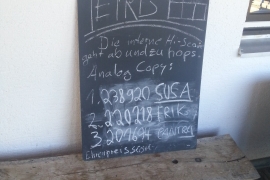 ETRIS
Die interne Hi-Score
ab und zu hops
Analog Copy:
1. 238920 SUSA
2. 220218 ERIK
3. 201694
Ehrenpreis